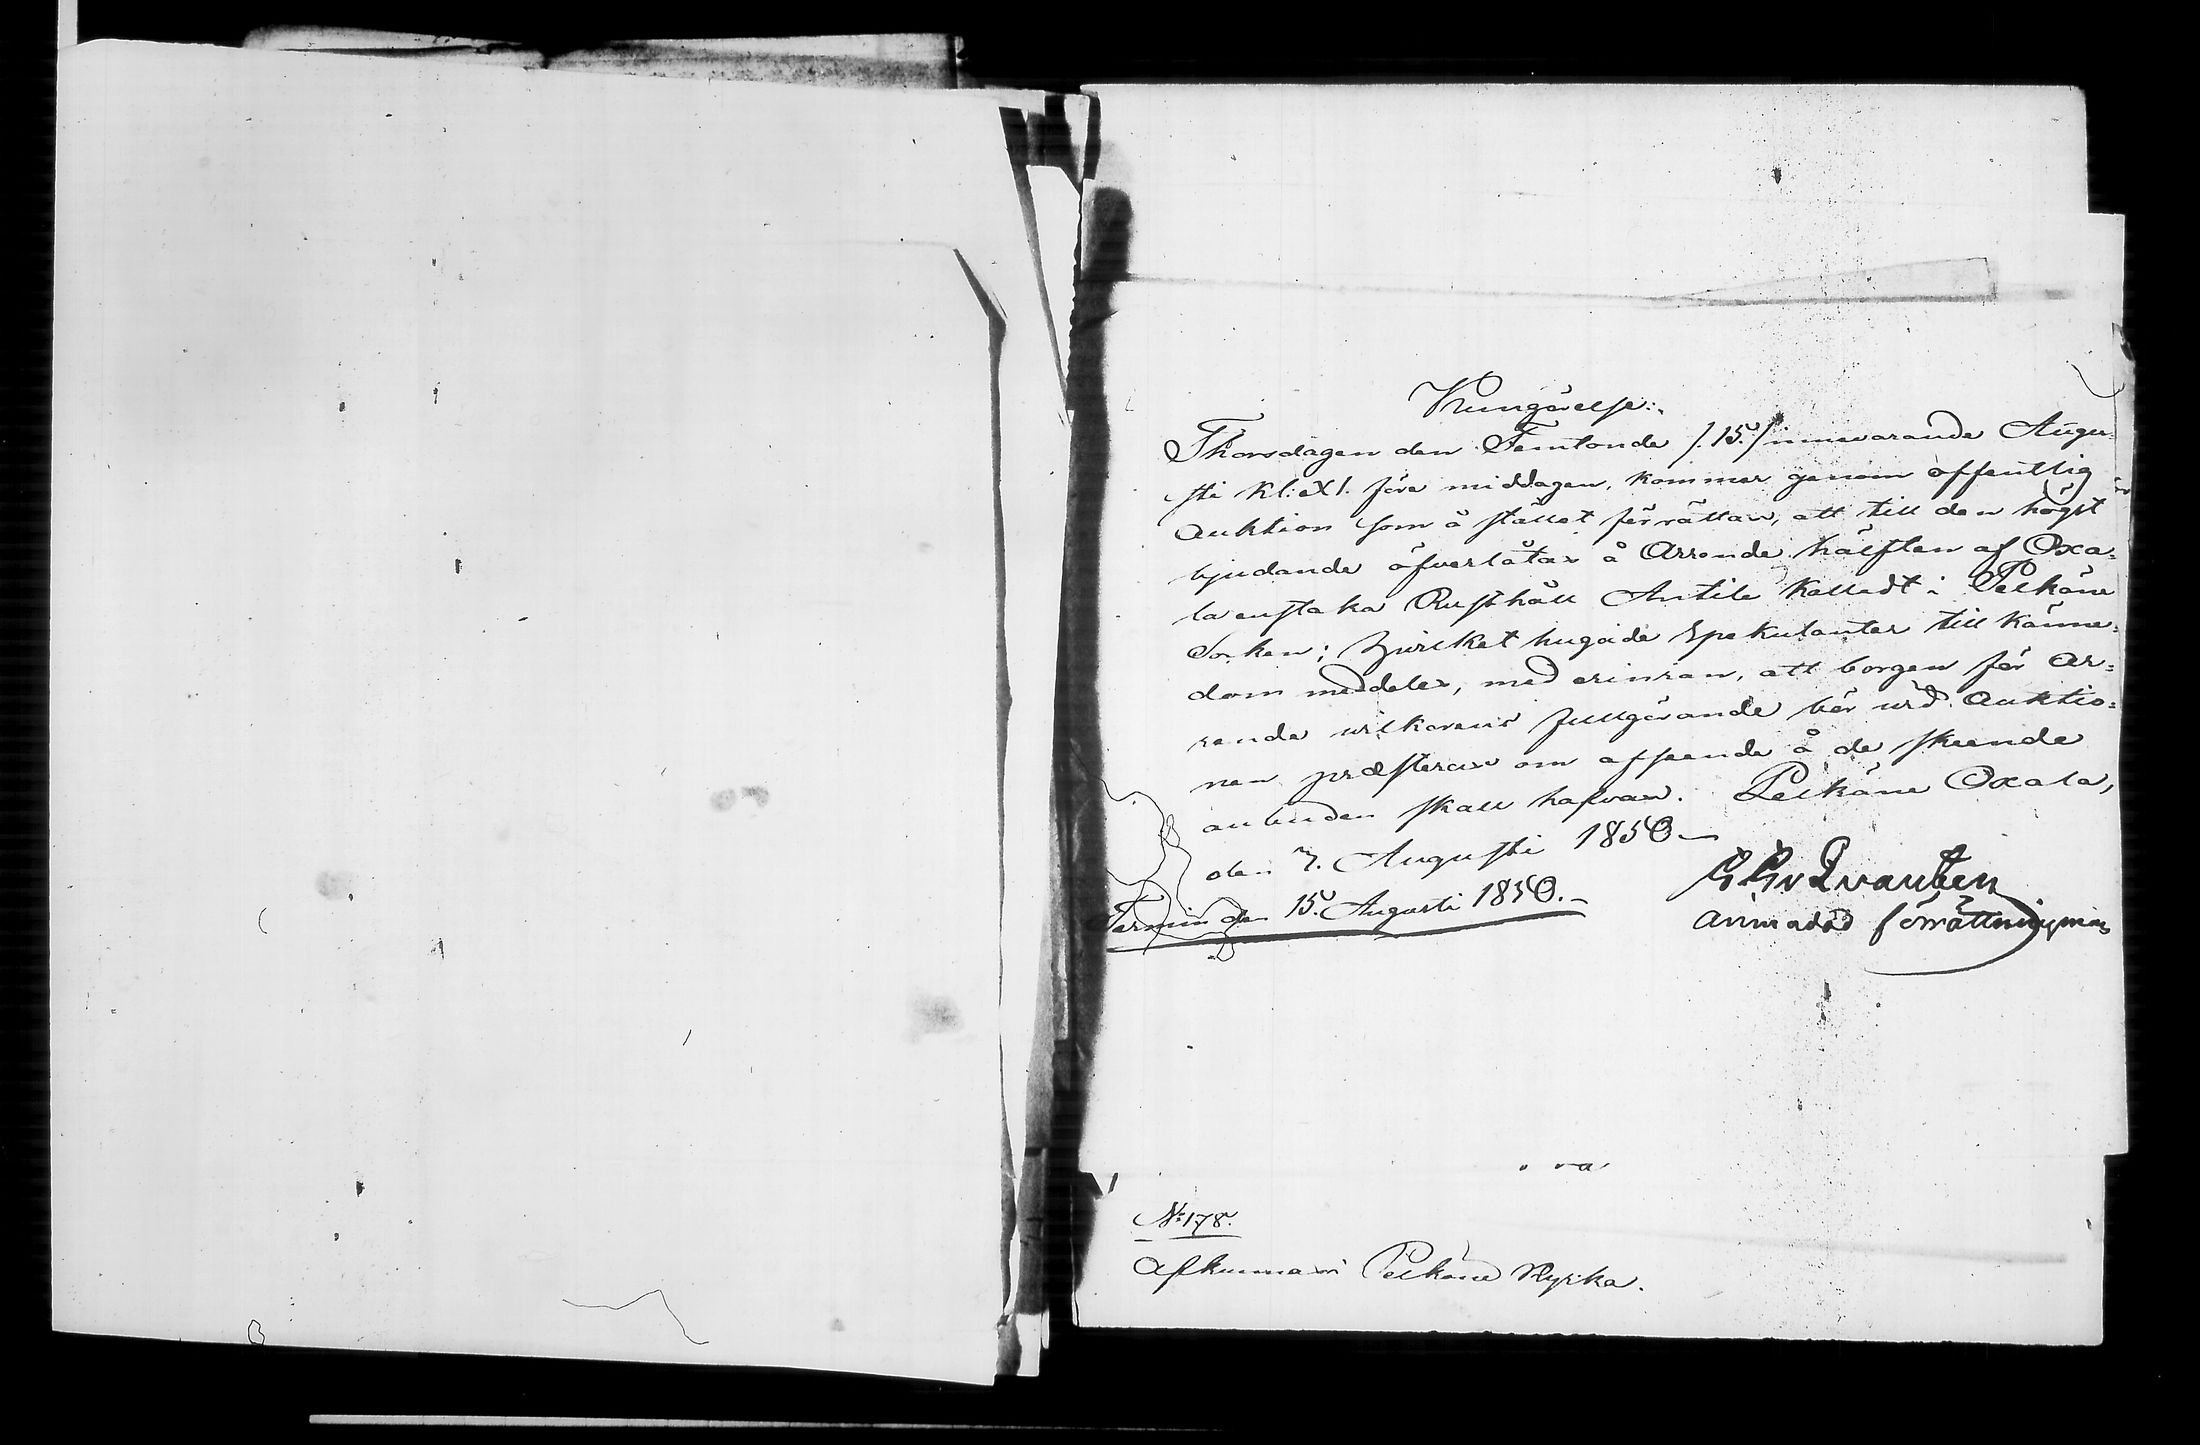 Kungörelse:
Thorsdagen den Femtonde /:15:/ innevarande Augu-
sti kl: XI. före middagen, kommer genom offentlig
Auktion som å stället förrättas, att till den högst
bjudande öfverlåtas å Arrende hälften af Oxa-
la enstaka Rusthåll Antila kalladt i Pelkäne
Socken; Hvilket hugade Spekulanter till känne-
dom meddelas, med erinran, att borgen för Ar-
rende wilkorens fullgörande bör wid Auktio-
nen præsteras om afseende å de skeende
anbuden skall hafvas. Pelkäne Oxala,
den 7. Augusti 1850
Termin den 15. Augusti 1850.
anmodad förrättningsman
No 178.
Afkunnas i Pelkäne Kyrka.